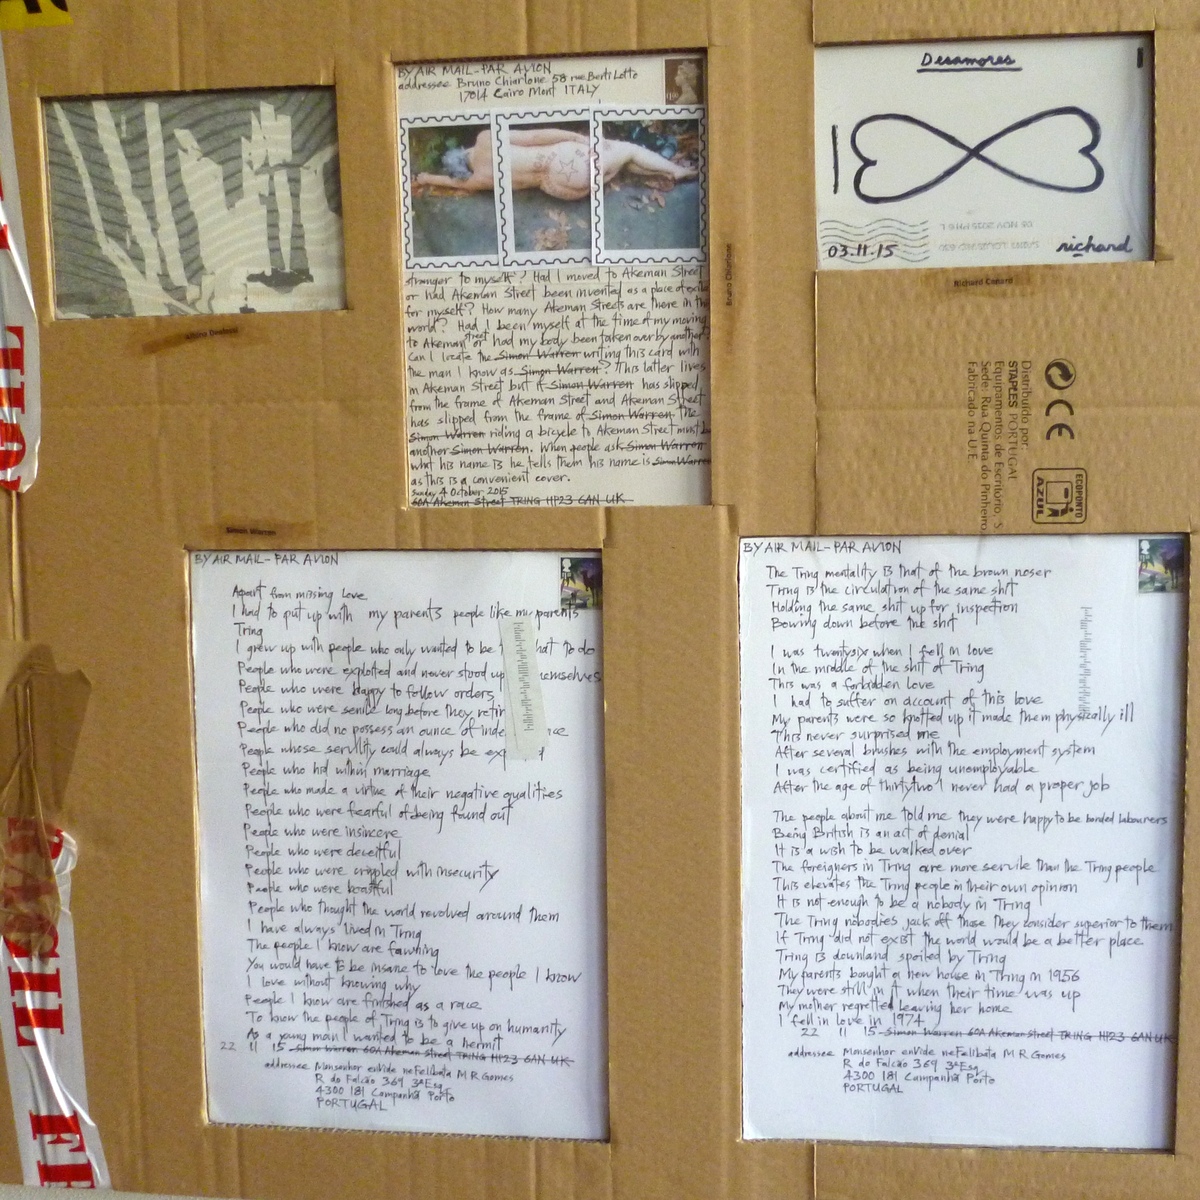 BY AIR MAIL-PAR AVION
addressee Bruno Chiarlone 58 rue Berti Lotto
17014 Cairo Mont ITALY
stranger to myself? Had I moved to Akeman Street
or had Akeman Street been invented as a place of exile
for myself? How many Akeman Streets are there in the
world? Had I been myself at the time of my moving
to Akeman street or had my body been taken over by another
Can I locate the Simon Warren writing this card with
the man I know as Simon Warren? This latter lives
in Akeman Street but if Simon Warren has slipped
from the frame of Akeman Street and Akeman Street
has slipped from the frame of Simon Warren the
Simon Warren riding a bicycle to Akeman Street must be
another Simon Warren. When people ask Simon Warren
what his name is he tells them his name is Simon Warren
as this is a convenient cover.
Sunday 4 October 2015
60A Akeman Street TRING HP23 6AN UK
Bruno Chiarlone
Desamores
03.11.15
richard
Richard Canard
Distribuído por:
STAPLES PORTUGAL
Equipamentos de Escritório, S.
Sede: Rua Quinta do Pinheiro
Fabricado na U.E.
CE
ECOPONTO
AZUL
Simon Warren
BY AIR MAIL-PAR AVION
Apart from missing love
I had to put up with my parents people like my parents
Tring
I grew up with people who only wanted to be hat to do
People who were exploited and never stood up emselves
People who were happy to follow orders
People who were senile long before they retir
People who did no possess an ounce of inde ce
People whose servility could always be exp d
People who hid within marriage
People who made a virtue of their negative qualities
People who were fearful of being found out
People who were insincere
People who were deceitful
People who were crippled with insecurity
People who were boastful
People who thought the world revolved around them
I have always lived in Tring
The people I know are fawning
You would have to be insane to love the people I know
I love without knowing why
People I know are finished as a race
To know the people of Tring is to give up on humanity
As a young man I wanted to be a hermit
22 11 15 Simon Warren 60A Akeman Street TRING HP23 6AN UK
addressee Monsenhor enVide neFelibata M R Gomes
R do Falcão 369 3ºEsq
4300 181 Campanhã Porto
PORTUGAL
BY AIR MAIL-PAR AVION
The Tring mentality is that of the brown noser
Tring is the circulation of the same shit
Holding the same shit up for inspection
Bowing down before the shit
I was twentysix when I fell in love
In the middle of the shit of Tring
This was a forbidden love
I had to suffer on account of this love
My parents were so knotted up it made them physically ill
This never surprised me
After several brushes with the employment system
I was certified as being unemployable
After the age of thirtytwo I never had a proper job
The people about me told me they were happy to be bonded labourers
Being British is an act of denial
It is a wish to be walked over
The foreigners in Tring are more servile than the Tring people
This elevates the Tring people in their own opinion
It is not enough to be a nobody in Tring
The Tring nobodies jack off those they consider superior to them
If Tring did not exist the world would be a better place
Tring is downland spoiled by Tring
My parents bought a new house in Tring in 1956
They were still in it when their time was up
My mother regretted leaving her home
I fell in love in 1974
22 11 15 Simon Warren 60A Akeman Street TRING HP23 6AN UK
addressee Monsenhor enVide neFelibata M R Gomes
R do Falcão 369 3ºEsq
4300 181 Campanhã Porto
PORTUGAL